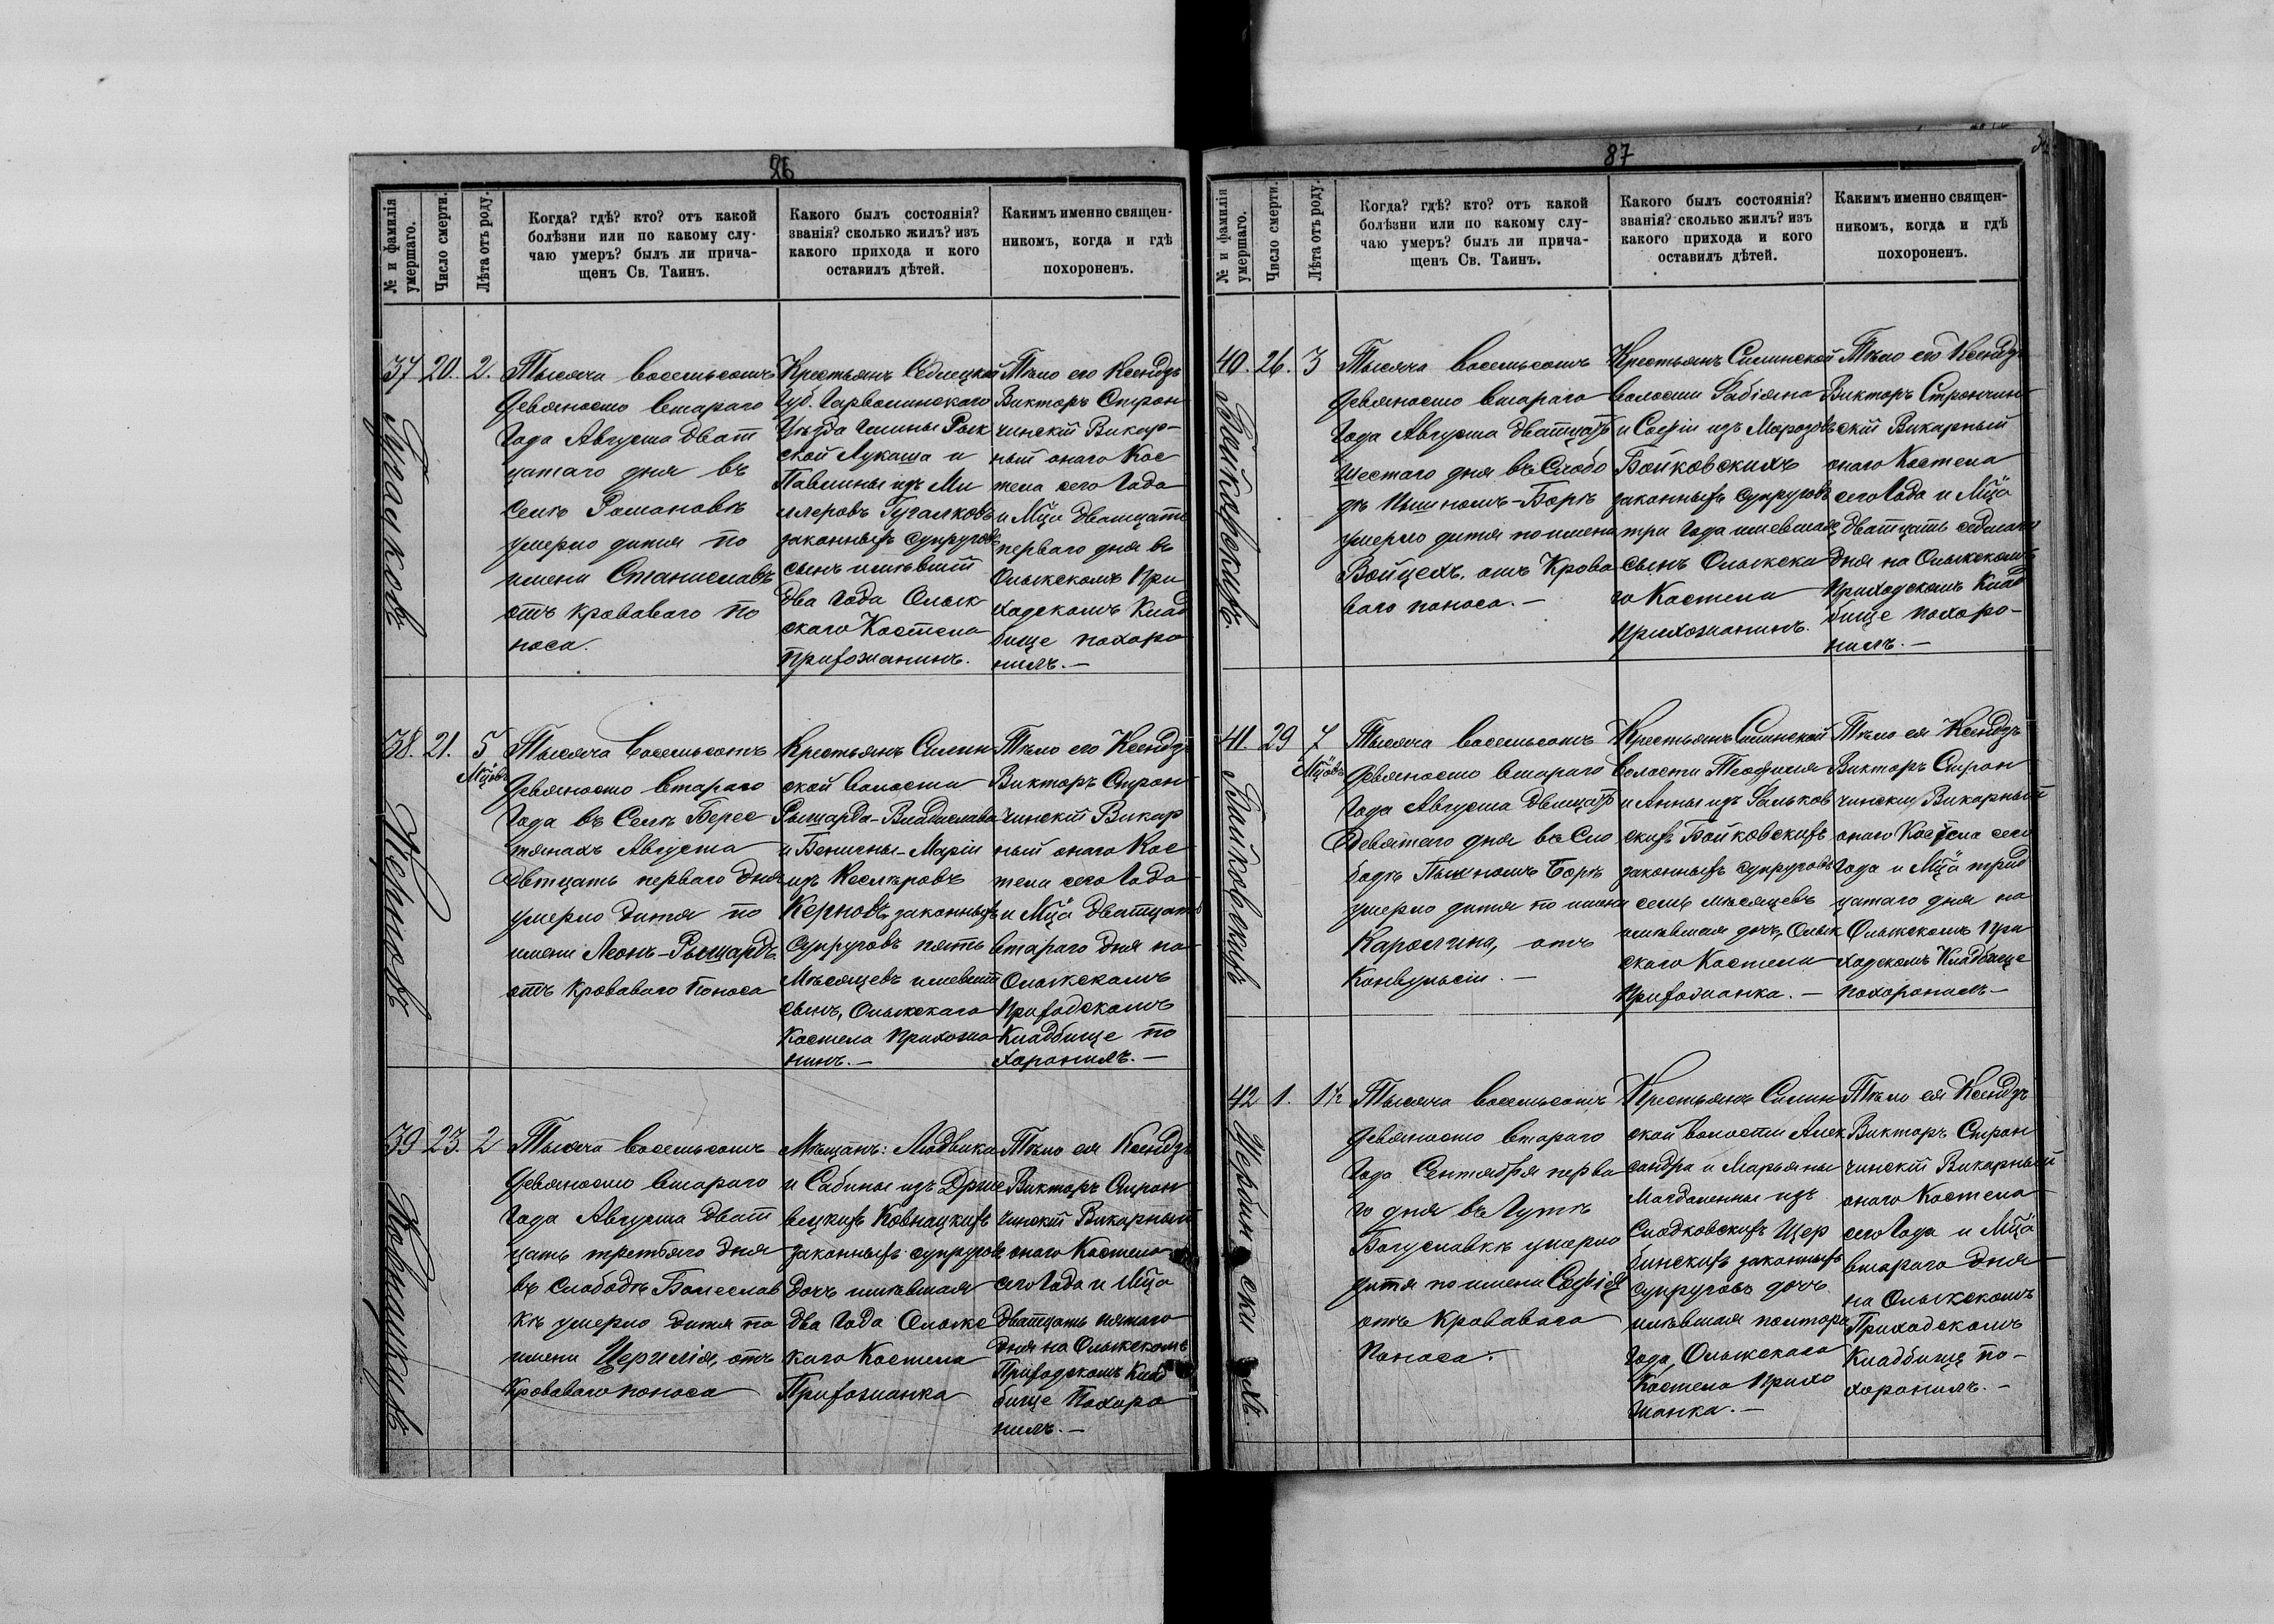 26
№ и фамилія умершаго.
Число смерти.
Лѣта отъ роду.
Когда? гдѣ? кто? отъ какой
болѣзни или по какому слу-
чаю умеръ? былъ ли прича-
щенъ Св. Таинъ.
Какого былъ состоянія?
званія? сколько жилъ? изъ
какого прихода и кого
оставилъ дѣтей.
Какимъ именно священ-
никомъ, когда и гдѣ
похороненъ.
37
20.
2.
Тысяча восемьсотъ
Девяносто втараго
Года Августа Дват
цатаго дня въ
Селѣ Романовкѣ
умерло дитя по
имени Станиславъ
отъ кроваваго по
носа.
Крестьянъ Седлецкой
Губ. Гарволинскаго
Уѣзда Гмины
ской Лукаша и
Павлины изъ Ми
ллеровъ
законныхъ супруговъ
сынъ имѣвшій
два Года Олык
скаго Костела
Прихожанинъ.
Тѣло его Ксендзъ
Викторъ Строн
чинскій Викар-
ный онаго Кос
тела сего Года
и Мца Двадцать
перваго дня въ
Олыкскомъ При
ходскомъ Клад
бище похоро
нилъ. —
38.
21.
5
Мцовъ
Керновъ
Тысяча восемьсотъ
Девяносто втараго
Года въ Селѣ Берес
тянахъ Августа
Двтцать перваго Дня
умерло Дитя по
имени Леонъ-Рышардъ
отъ Кроваваго Поноса
Крестьянъ Силин
ской волости
Рышарда-Владислава
и Бенигны-Маріи
изъ Кеслѣровъ
Керновъ законныхъ
Супруговъ пять
Мѣсяцевъ имевшій
сынъ, Олыкскаго
Костела Прихожа
нинъ. —
Тѣло его Ксендзъ
Викторъ Строн
чинскій Викар
ный онаго Кос
тела сего Года
и Мца Дватцать
втараго Дня на
Олыкскомъ
Приходскомъ
Кладбище по
харонилъ. —
39
23.
2
Ковнацкихъ
Тысяча восемьсотъ
Девяносто втараго
Года Августа Дват
цать третьяго Дня
въ Слободѣ Болеслав
кѣ умерло Дитя по
имени Церилія, отъ
Кроваваго поноса
Мѣщанъ: Людвика
и Сабины изъ Држе
вецкихъ Ковнацкихъ
законныхъ супруговъ
Дочь имѣвшая
два Года Олыкс
каго Костела
Прихожанка
Тѣло ея Ксендзъ
Викторъ Строн
чинскій Викарный
онаго Костела
сего Года и Мца
Дватцать пятаго
Дня на Олыкскомъ
Приходскомъ Клад
бище Похоро
нилъ. —
87
№ и фамилія умершаго.
Число смерти.
Лѣта отъ роду.
Когда? гдѣ? кто? отъ какой
болѣзни или по какому слу-
чаю умеръ? былъ ли прича-
щенъ Св. Таинъ.
Какого былъ состоянія?
званія? сколько жилъ? изъ
какого прихода и кого
оставилъ дѣтей.
Какимъ именно священ-
никомъ, когда и гдѣ
похороненъ.
40.
26.
3
Бойковскихъ.
Тысяча восемьсотъ
Девяносто втараго
Года Августа Дватцать
Шестаго дня въ Слобо
дѣ Пышномъ-Боркѣ
умерло дитя по имени
Войцехъ. отъ Крова
ваго поноса. —
Крестьянъ Силинской
волости Фабіяна
и Софіи изъ Морозовъ
Бойковскихъ
законныхъ супруговъ
три Года имевшій
сынъ Олыкска
го Костела
Прихожанинъ.
Тѣло его Ксендзъ
Викторъ Строчин
скій Викарный
онаго Костела
сего Года и Мца
Дватцать седьмаго
Дня на Олыкскомъ
Приходскомъ Клад
бище похоро-
нилъ. —
41
29
7
Мцовъ
Бойковскихъ
Тысяча восемьсотъ
Девяносто втараго
Года Августа Двтцать
Девятаго дня въ Сло
бодѣ Пышномъ Боркѣ
умерло дитя по имени
Каролина, отъ
Конвульсіи. —
Крестьянъ Силинской
волости Теофиля
и Анны изъ Фальков
скихъ Бойковскихъ
законныхъ супруговъ
семь мѣсяцевъ
имѣвшая дочь, Олык
скаго Костела
Прихожанка. —
Тѣло ея Ксендзъ
Викторъ Строн
чинскій Викарный
онаго Костела сего
Года и Мца трид
цатаго дня на
Олыкскомъ При
ходскомъ Кладбище
похоронилъ —
42
1.
1½
Щербинскихъ.
Тысяча восемьсотъ
Девяносто втараго
Года Сентября перва
го дня въ Гуткѣ
Богуславкѣ умерло
дитя по имени Софія
отъ Кроваваго
Поноса.
Крестьянъ Силин
ской волости Алек
сандра и Марьяны
Магдалины изъ
Сладковскихъ Щер
бинскихъ законныхъ
супруговъ дочь
имѣвшая полтора
Года, Олыкскаго
Костела Прихо
жанка. —
Тѣло ея Ксендзъ
Викторъ Строн
чинскій Викарный
онаго Костела
сего Года и Мца
втараго Дня
на Олыкскомъ
Приходскомъ
Кладбище по-
харонилъ. —